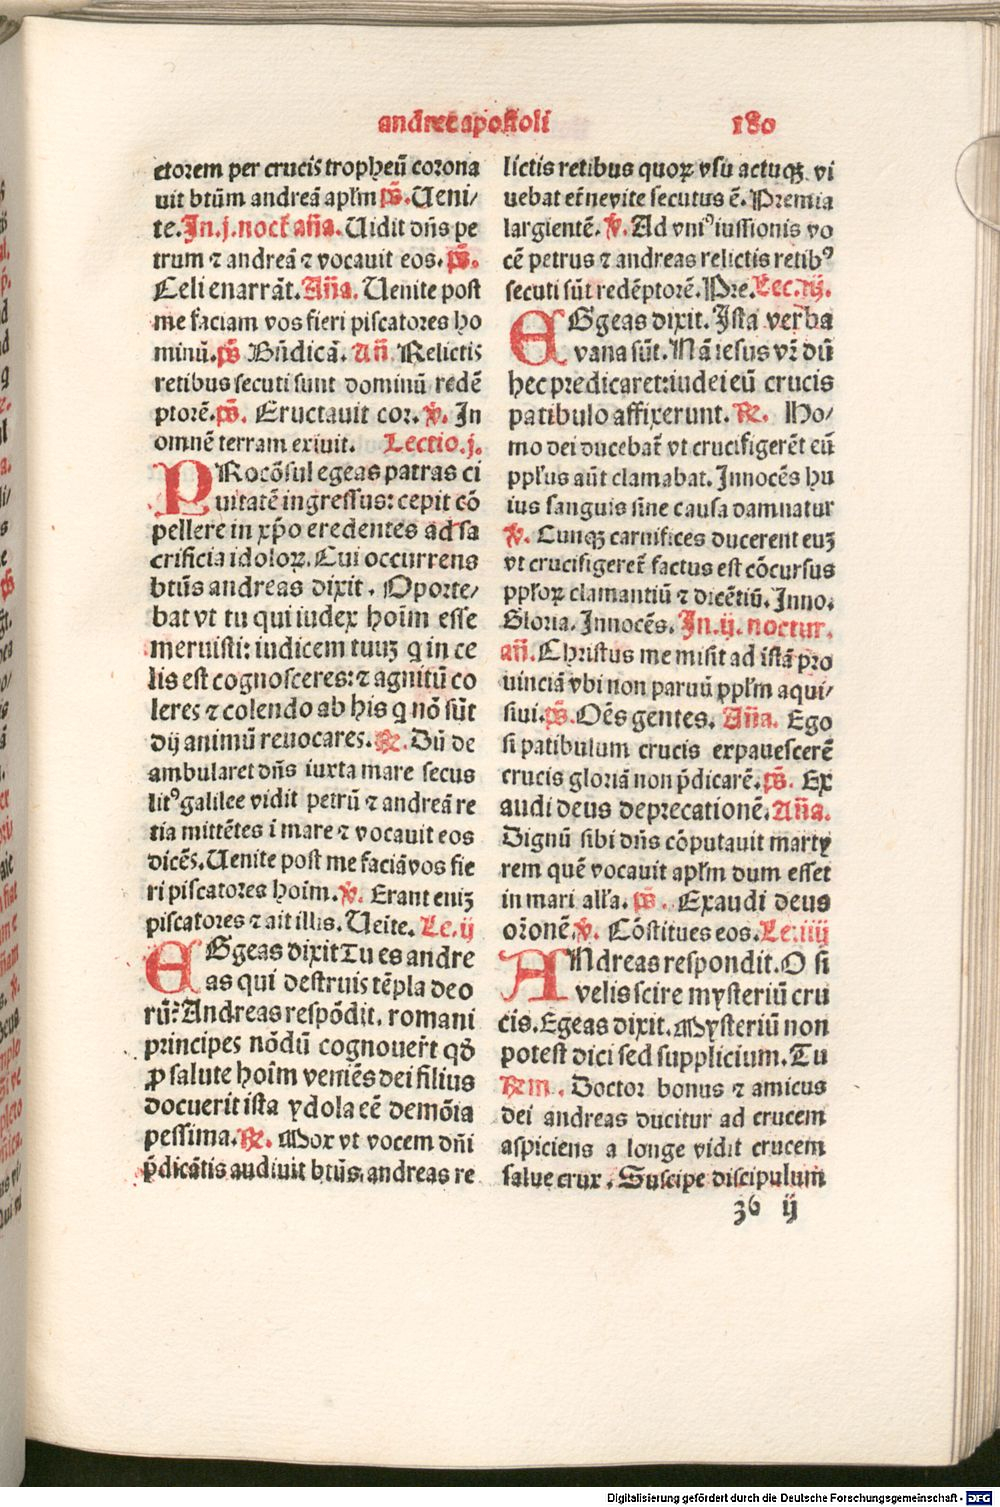 andree apostoli 180
ctorem per crucis tropheū corona
uit btūm andreā aplm̄ ps̄. Ueni/
te. In .j. noct̄ an̄a. Uidit dn̄s pe
trum ⁊ andreā ⁊ vocauit eos. ps̄.
Celi enarrāt. An̄a. Uenite post
me faciam vos fieri piscatores ho
minū. ps̄ Bn̄dicā. an̄ Relictis
retibus secuti sunt dominū redē
ptorē. ps̄. Eructauit cor. ꝟ. In
omnē terram exiuit. Lectio .j.
PRocōsul egeas patras ci
uitatē ingressus: cepit cō
pellere in xp̄o credentes ad sa
crificia idoloꝝ. Cui occurrens
btūs andreas dixit. Oporte/
bat vt tu qui iudex hoīm esse
meruisti: iudicem tuuꝫ q in ce
lis est cognosceres: ⁊ agnitū co
leres ⁊ colendo ab his q nō sūt
dij animū reuocares. ℟. Dū de
ambularet dn̄s iuxta mare secus
litꝰ galilee vidit petrū ⁊ andreā re
tia mittētes ī mare ⁊ vocauit eos
dicēs. Uenite post me faciā vos fie
ri piscatores hoīm. ꝟ. Erant eniꝫ
piscatores ⁊ ait illis. Ueite. Le. ij
EGgeas dixit Tu es andre
as qui destruis tēpla deo
rū? Andreas respōdit. romani
principes nōdū cognouer̄t qđ
ꝓ salute hoīm veniēs dei filius
docuerit ista ydola eē demōia
pessima. ℟. Mox vt vocem dn̄i
p̄dicātis audiuit btūs andreas re
lictis retibus quoꝝ vsu actuqꝫ vi
uebat eter̄ne vite secutus ē. Premia
largientē. ꝟ. Ad vniꝰ iussionis vo
cē petrus ⁊ andreas relictis retibꝰ
secuti sūt redēptorē. Pre. Lec. iij.
EGgeas dixit. Ista verba
vana sūt. Nā iesus vr̄ dū
hec predicaret: iudei eū crucis
patibulo affixerunt. ℟. Ho/
mo dei ducebat̄ vt crucifigerēt eū
pplūs aūt clamabat. Innocēs hu
ius sanguis sine causa damnatur
ꝟ. Cunqꝫ carnifices ducerent euꝫ
vt crucifigerēt factus est cōcursus
pploꝝ clamantiū ⁊ dicētiū. Inno.
Gloria. Innocēs. In .ij. noctur.
an̄. Christus me misit ad istā pro
uinciā vbi non paruū pplm̄ aqui/
siui. ps̄. Oēs gentes. An̄a. Ego
si patibulum crucis expauescerē
crucis gloriā non p̄dicarē. ps̄. Ex
audi deus deprecationē. An̄a.
Dignū sibi dn̄s cōputauit marty
rem quē vocauit aplm̄ dum esset
in mari all'a. ps̄. Exaudi deus
or̄onē. ꝟ. Cōstitues eos. Le. iiij
ANdreas respondit. O si
velis scire mysteriū cru
cis. Egeas dixit. Mysteriū non
potest dici sed supplicium. Tu
℟m. Doctor bonus ⁊ amicus
dei andreas ducitur ad crucem
aspiciens a longe vidit crucem
salue crux. Suscipe discipulum
36 ij
Digitalisierung gefördert durch die Deutsche Forschungsgemeinschaft - DFG